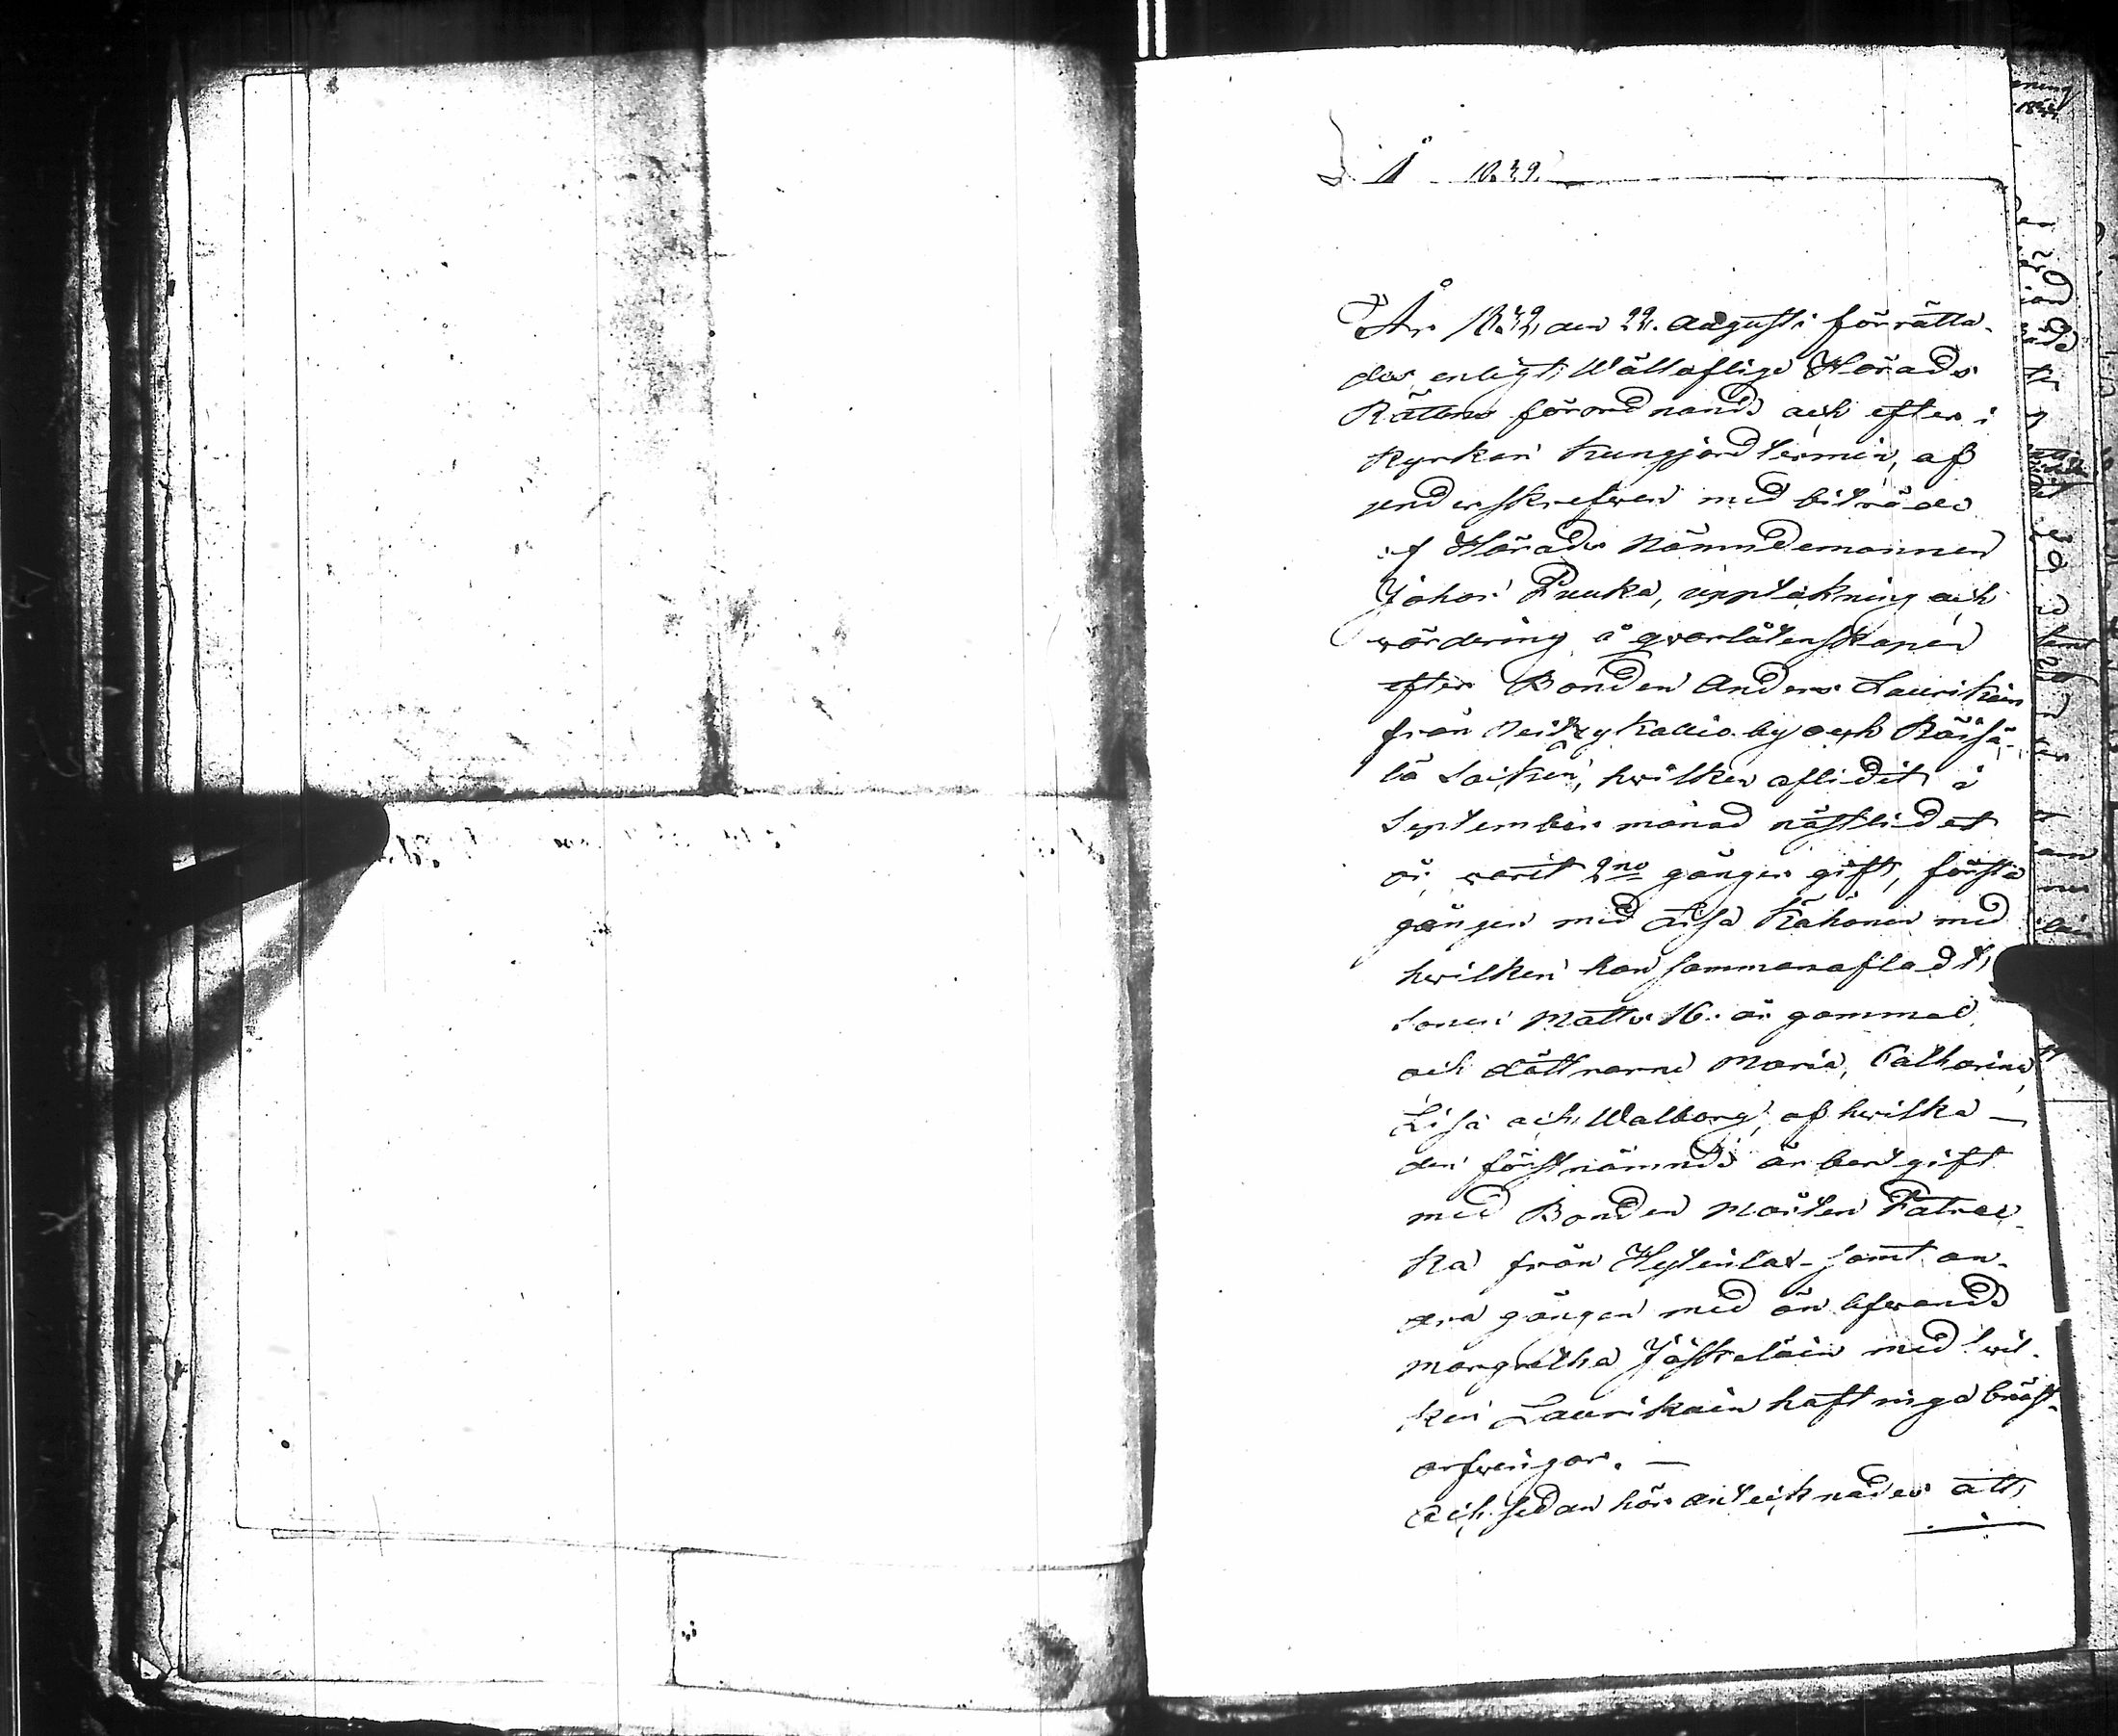 Å 1839.
År 1839, den 22. Augusti förrätta-
des enligt Wälloflige Härads
Rättens förordnande och efter i
Kyrkan kungjord termin, af
underskrefwen med biträde
af Härads Nämndemannen
Johan Puuka, uppteckning och
värdering å qvarlåtenskapen
efter Bonden Anders Laurikain
från kallio by och Räisä-
lä Socken, hwilken aflidit i
September månad nästlidet
år, varit 2ne gånger gift, första
gången med Lisa Kähönen med
hwilken han sammanafladt,
sonen Matts 16. år gammal
och döttrarne Maria, Catharina,
Lisa och Walborg, af hwilka —
den förstnämnde är bortgift
med Bonden Mårten Patrac-
ka från samt an-
dra gången med än lefwande
Margretha Jäskeläin med hwil-
ken Laurikain haft inga bröst-
arfwingar. —
Och sedan här antecknades att,